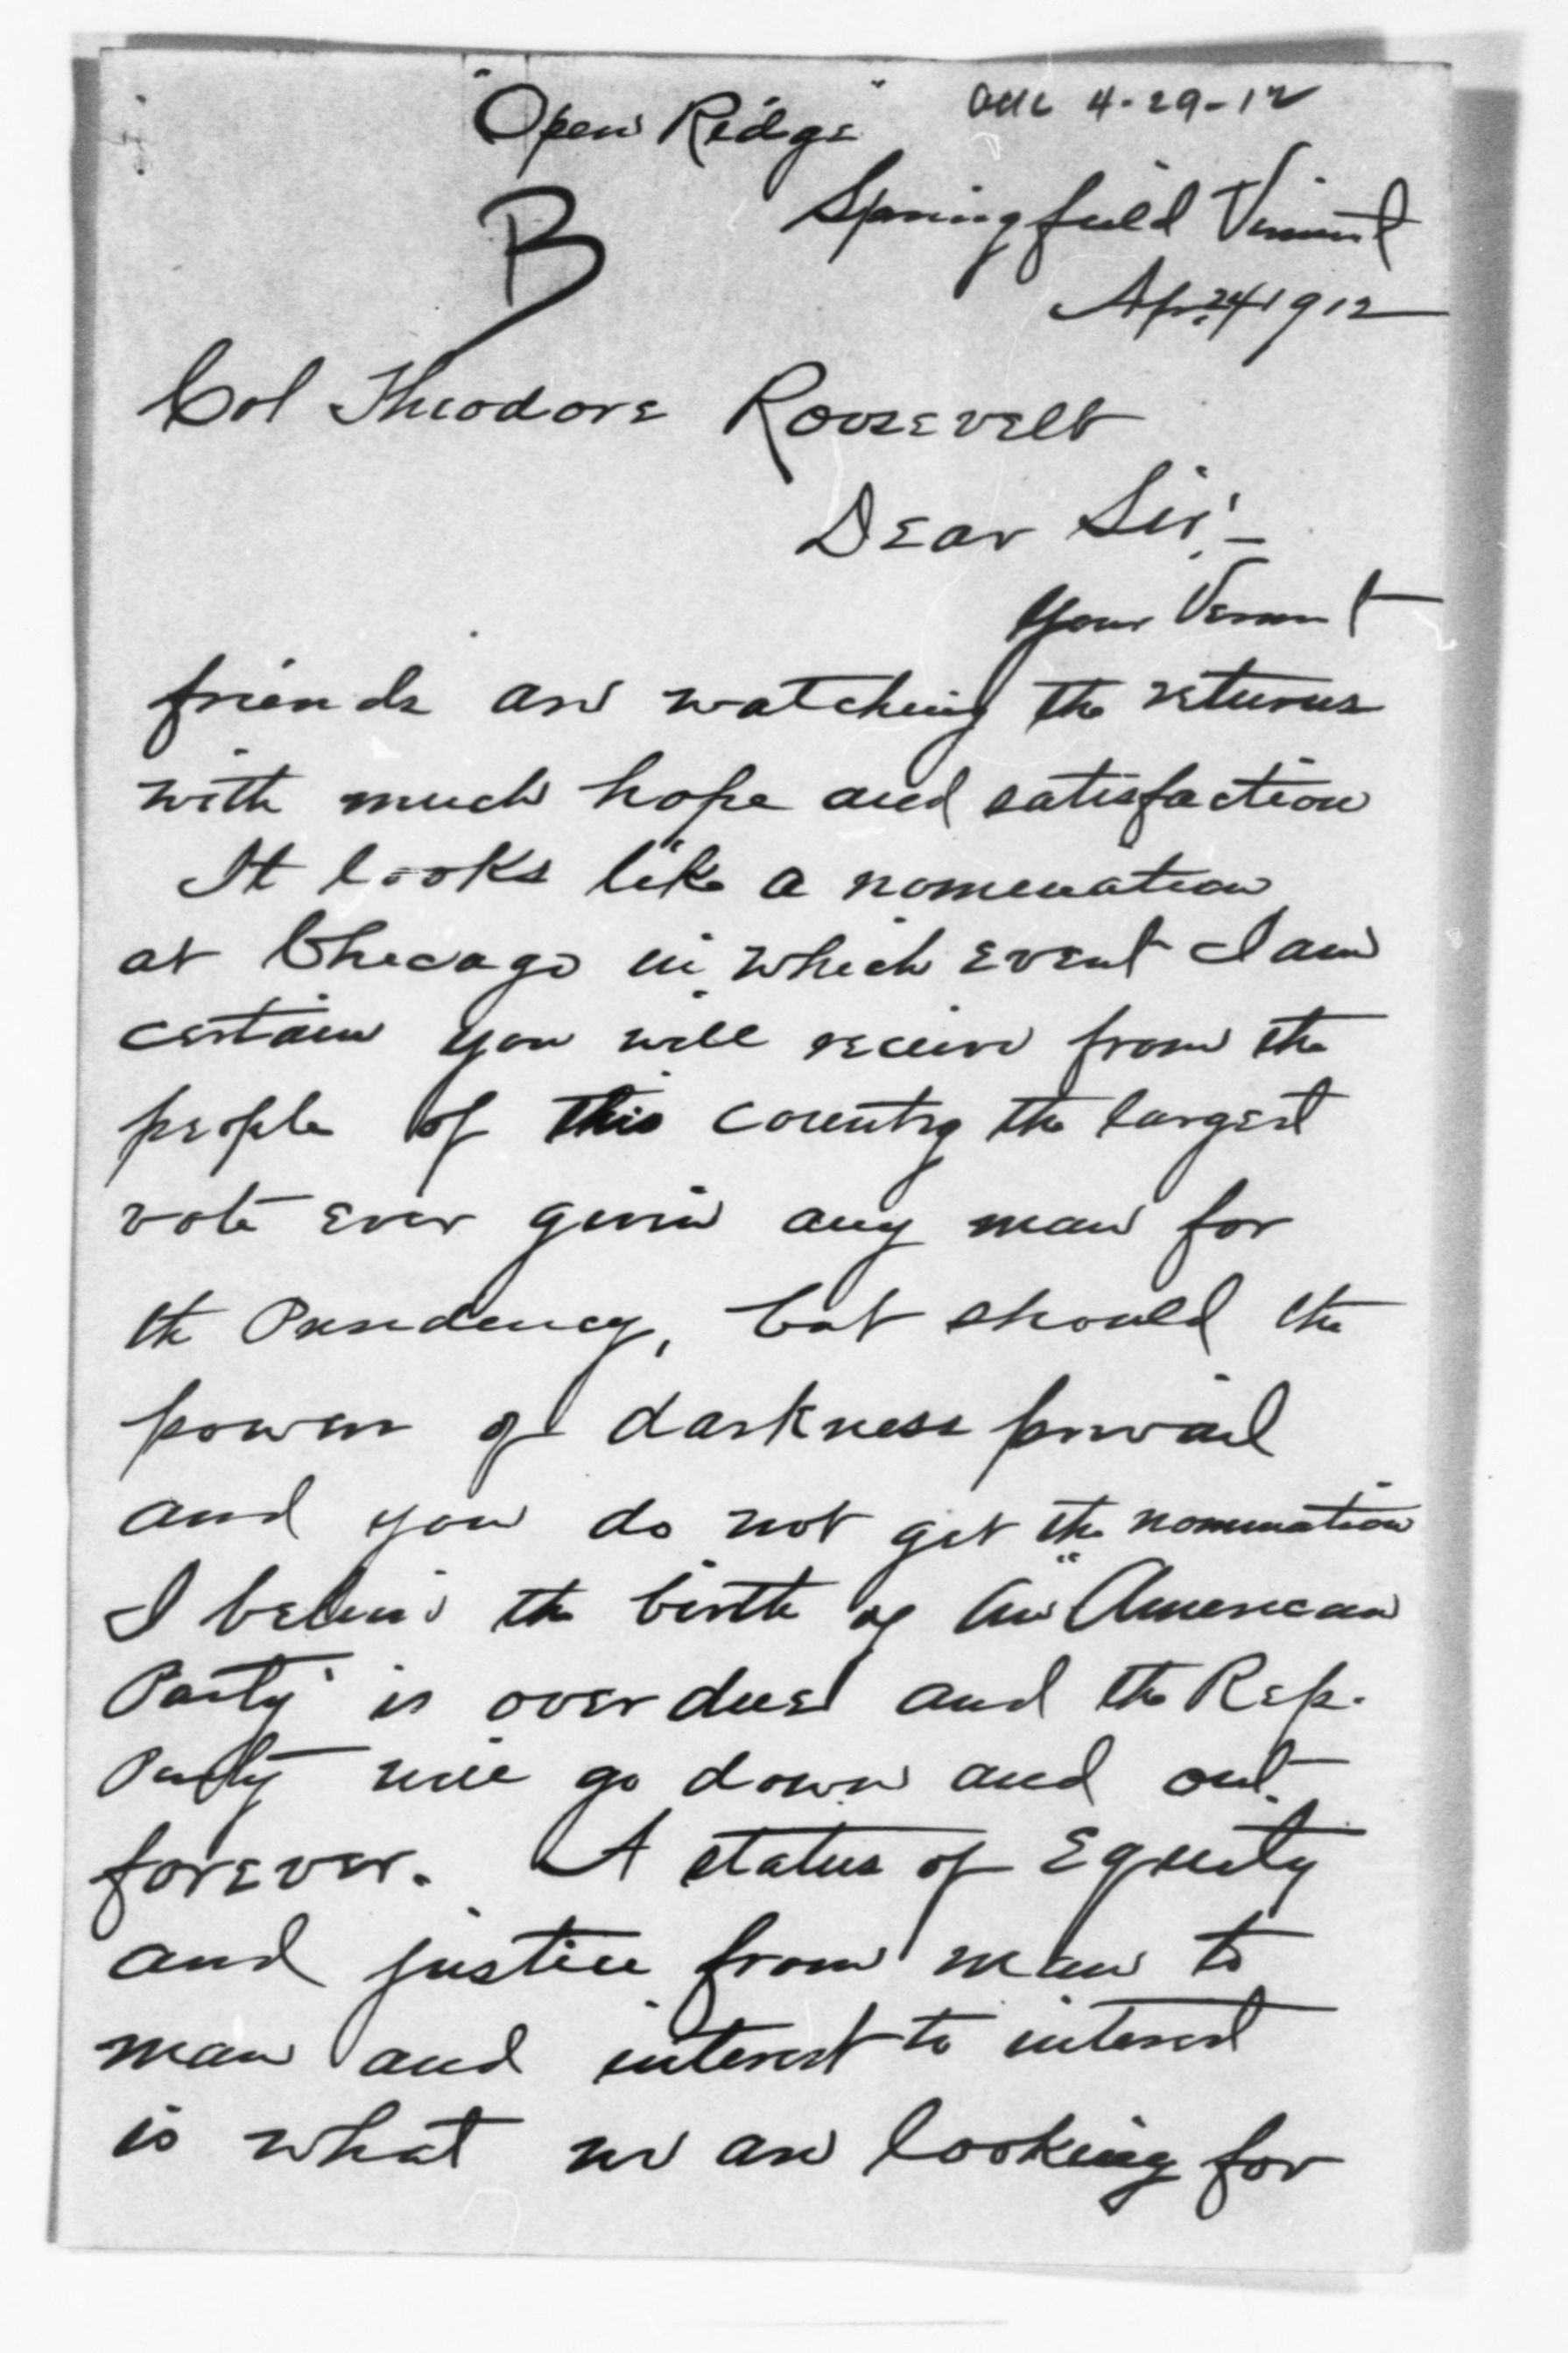 "Open Ridge"
4-29-12
B
Springfield Vermont
Apr 24 1912
Col Theodore Roosevelt
Dear Sir:-
Your Vermont
friends are watching the returns
with much hope and satisfaction
It looks like a nomination
at Chicago in which event I am
certain you will receive from the
people of this country the largest
vote ever given any man for
the Presidency, but should the
power of darkness prevail
and you do not get the nomination
I believe the birth of an "American
Party" is over due and the Rep.
Party will go down and out
forever. A status of Equity
and justice from man to
man and interest to interest
is what we are looking for